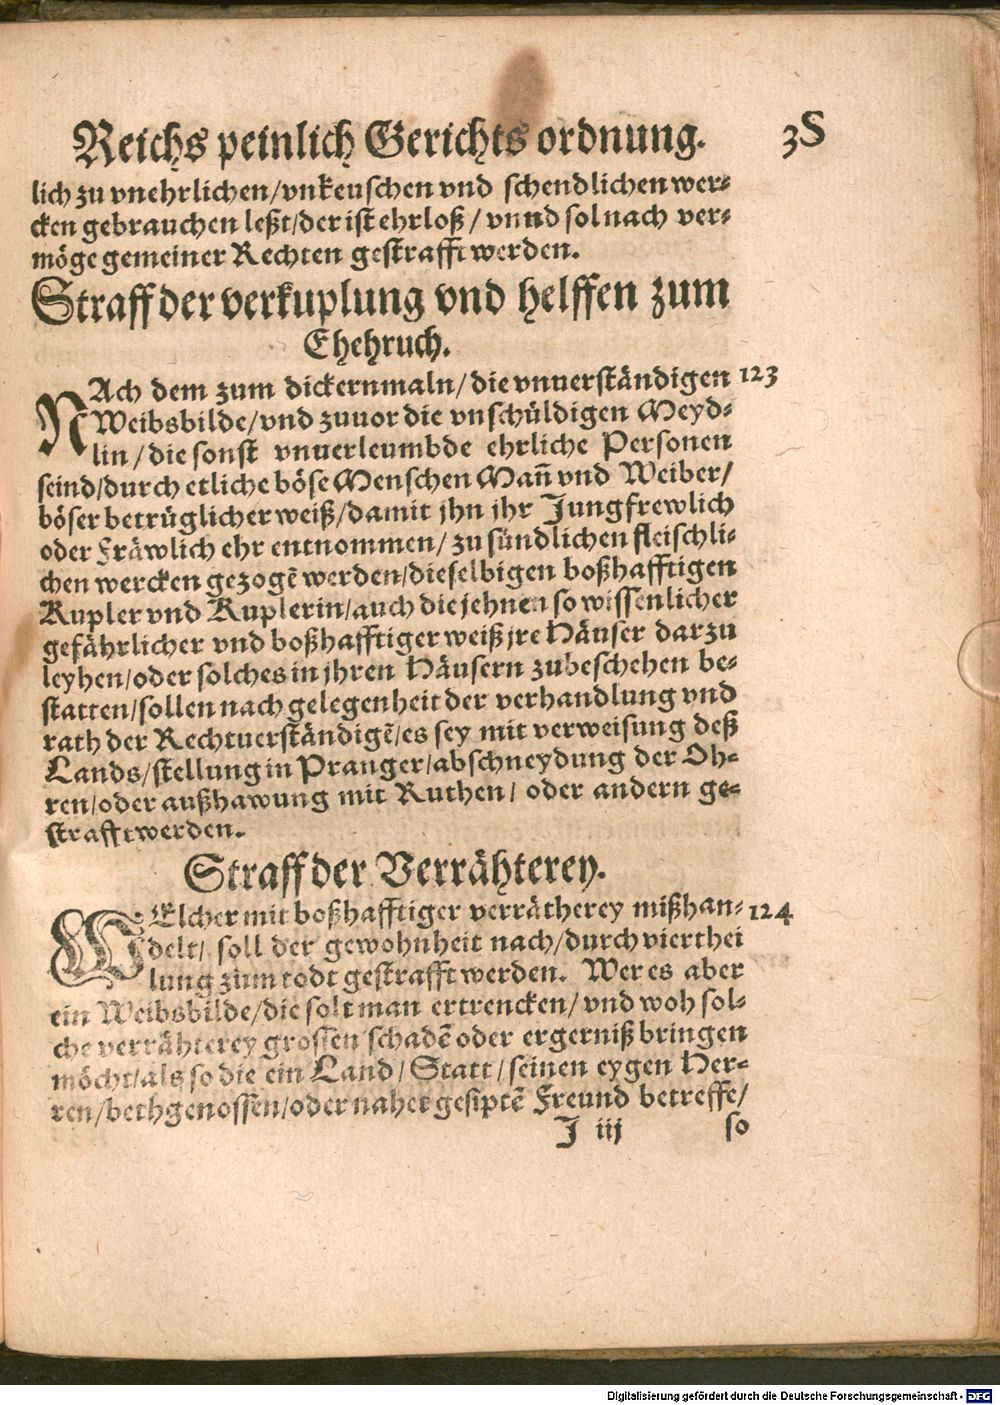 Reichs peinlich Gerichts ordnung. 35
lich zu vnehrlichen/vnkeuschen vnd schendlichen wer-
cken gebrauchen leßt/der ist ehrloß/ vnnd sol nach ver-
möge gemeiner Rechten gestrafft werden.
Straff der verkuplung vnd helffen zum
Ehehruch.
NAch dem zum dickernmaln/die vnuerständigen 123
Weibsbilde/vnd zuuor die vnschüldigen Meyd-
lin/die sonst vnuerleumbde ehrliche Personen
seind/durch etliche böse Menschen Mañ vnd Weiber/
böser betrüglicher weiß/damit jhn jhr Jungfrewlich
oder Fräwlich ehr entnommen/ zu sündlichen fleischli-
chen wercken gezogẽ werden/dieselbigen boßhafftigen
Kupler vnd Kuplerin/auch die jehnen so wissenlicher
gefährlicher vnd boßhafftiger weiß jre Häuser darzu
leyhen/oder solches in jhren Häusern zubeschehen be-
statten/sollen nach gelegenheit der verhandlung vnd
rath der Rechtuerständigẽ/es sey mit verweisung deß
Lands/stellung in Pranger/abschneydung der Oh-
ren/oder außhawung mit Ruthen/ oder andern ge-
strafft werden.
Straff der Verrähterey.
WElcher mit boßhafftiger verrätherey mißhan- 124
delt/ soll der gewohnheit nach/durch vierthei
lung zum todt gestrafft werden. Wer es aber
ein Weibsbilde/die solt man ertrencken/vnd woh sol-
che verrähterey grossen schadẽ oder ergerniß bringen
möcht/als so die ein Land/Statt/seinen eygen Her-
ren/bethgenossen/oder nahet gesiptẽ Freund betreffe/
J iij so
Digitalisierung gefördert durch die Deutsche Forschungsgemeinschaft - DFG